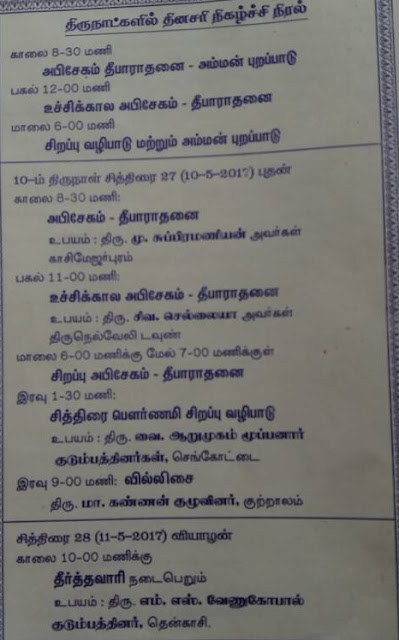 திருநாட்களில் தினசரி நிகழ்ச்சி நிரல்
காலை 8-30 மணி
அபிசேகம் தீபாராதனை - அம்மன் புறப்பாடு
பகல் 12-00 மணி
உச்சிக்கால அபிசேகம் - தீபாராதனை
மாலை 6-00 மணி
சிறப்பு வழிபாடு மற்றும் அம்மன் புறப்பாடு
10-ம் திருநாள் சித்திரை 27 (10-5-2017) புதன்
காலை 8-30 மணி:
அபிசேகம் - தீபாராதனை
உபயம் : திரு. மு. சுப்பிரமணியன் அவர்கள்
காசிமேஜர்புரம்
பகல் 11-00 மணி:
உச்சிக்கால அபிசேகம் - தீபாராதனை
உபயம் : திரு. சிவ. செல்லையா அவர்கள்
திருநெல்வேலி டவுண்
மாலை 6-00 மணிக்கு மேல் 7-00 மணிக்குள்
சிறப்பு அபிசேகம் - தீபாராதனை
இரவு 1-30 மணி:
சித்திரை பௌர்ணமி சிறப்பு வழிபாடு
உபயம் : திரு. வை. ஆறுமுகம் மூப்பனார்
குடும்பத்தினர்கள், செங்கோட்டை
இரவு 9-00 மணி: வில்லிசை
திரு. மா. கண்ணன் குழுவினர், குற்றாலம்
சித்திரை 28 (11-5-2017) வியாழன்
காலை 10-00 மணிக்கு
தீர்த்தவாரி நடைபெறும்
உபயம் : திரு. எம். எஸ். வேணுகோபால்
குடும்பத்தினர், தென்காசி.